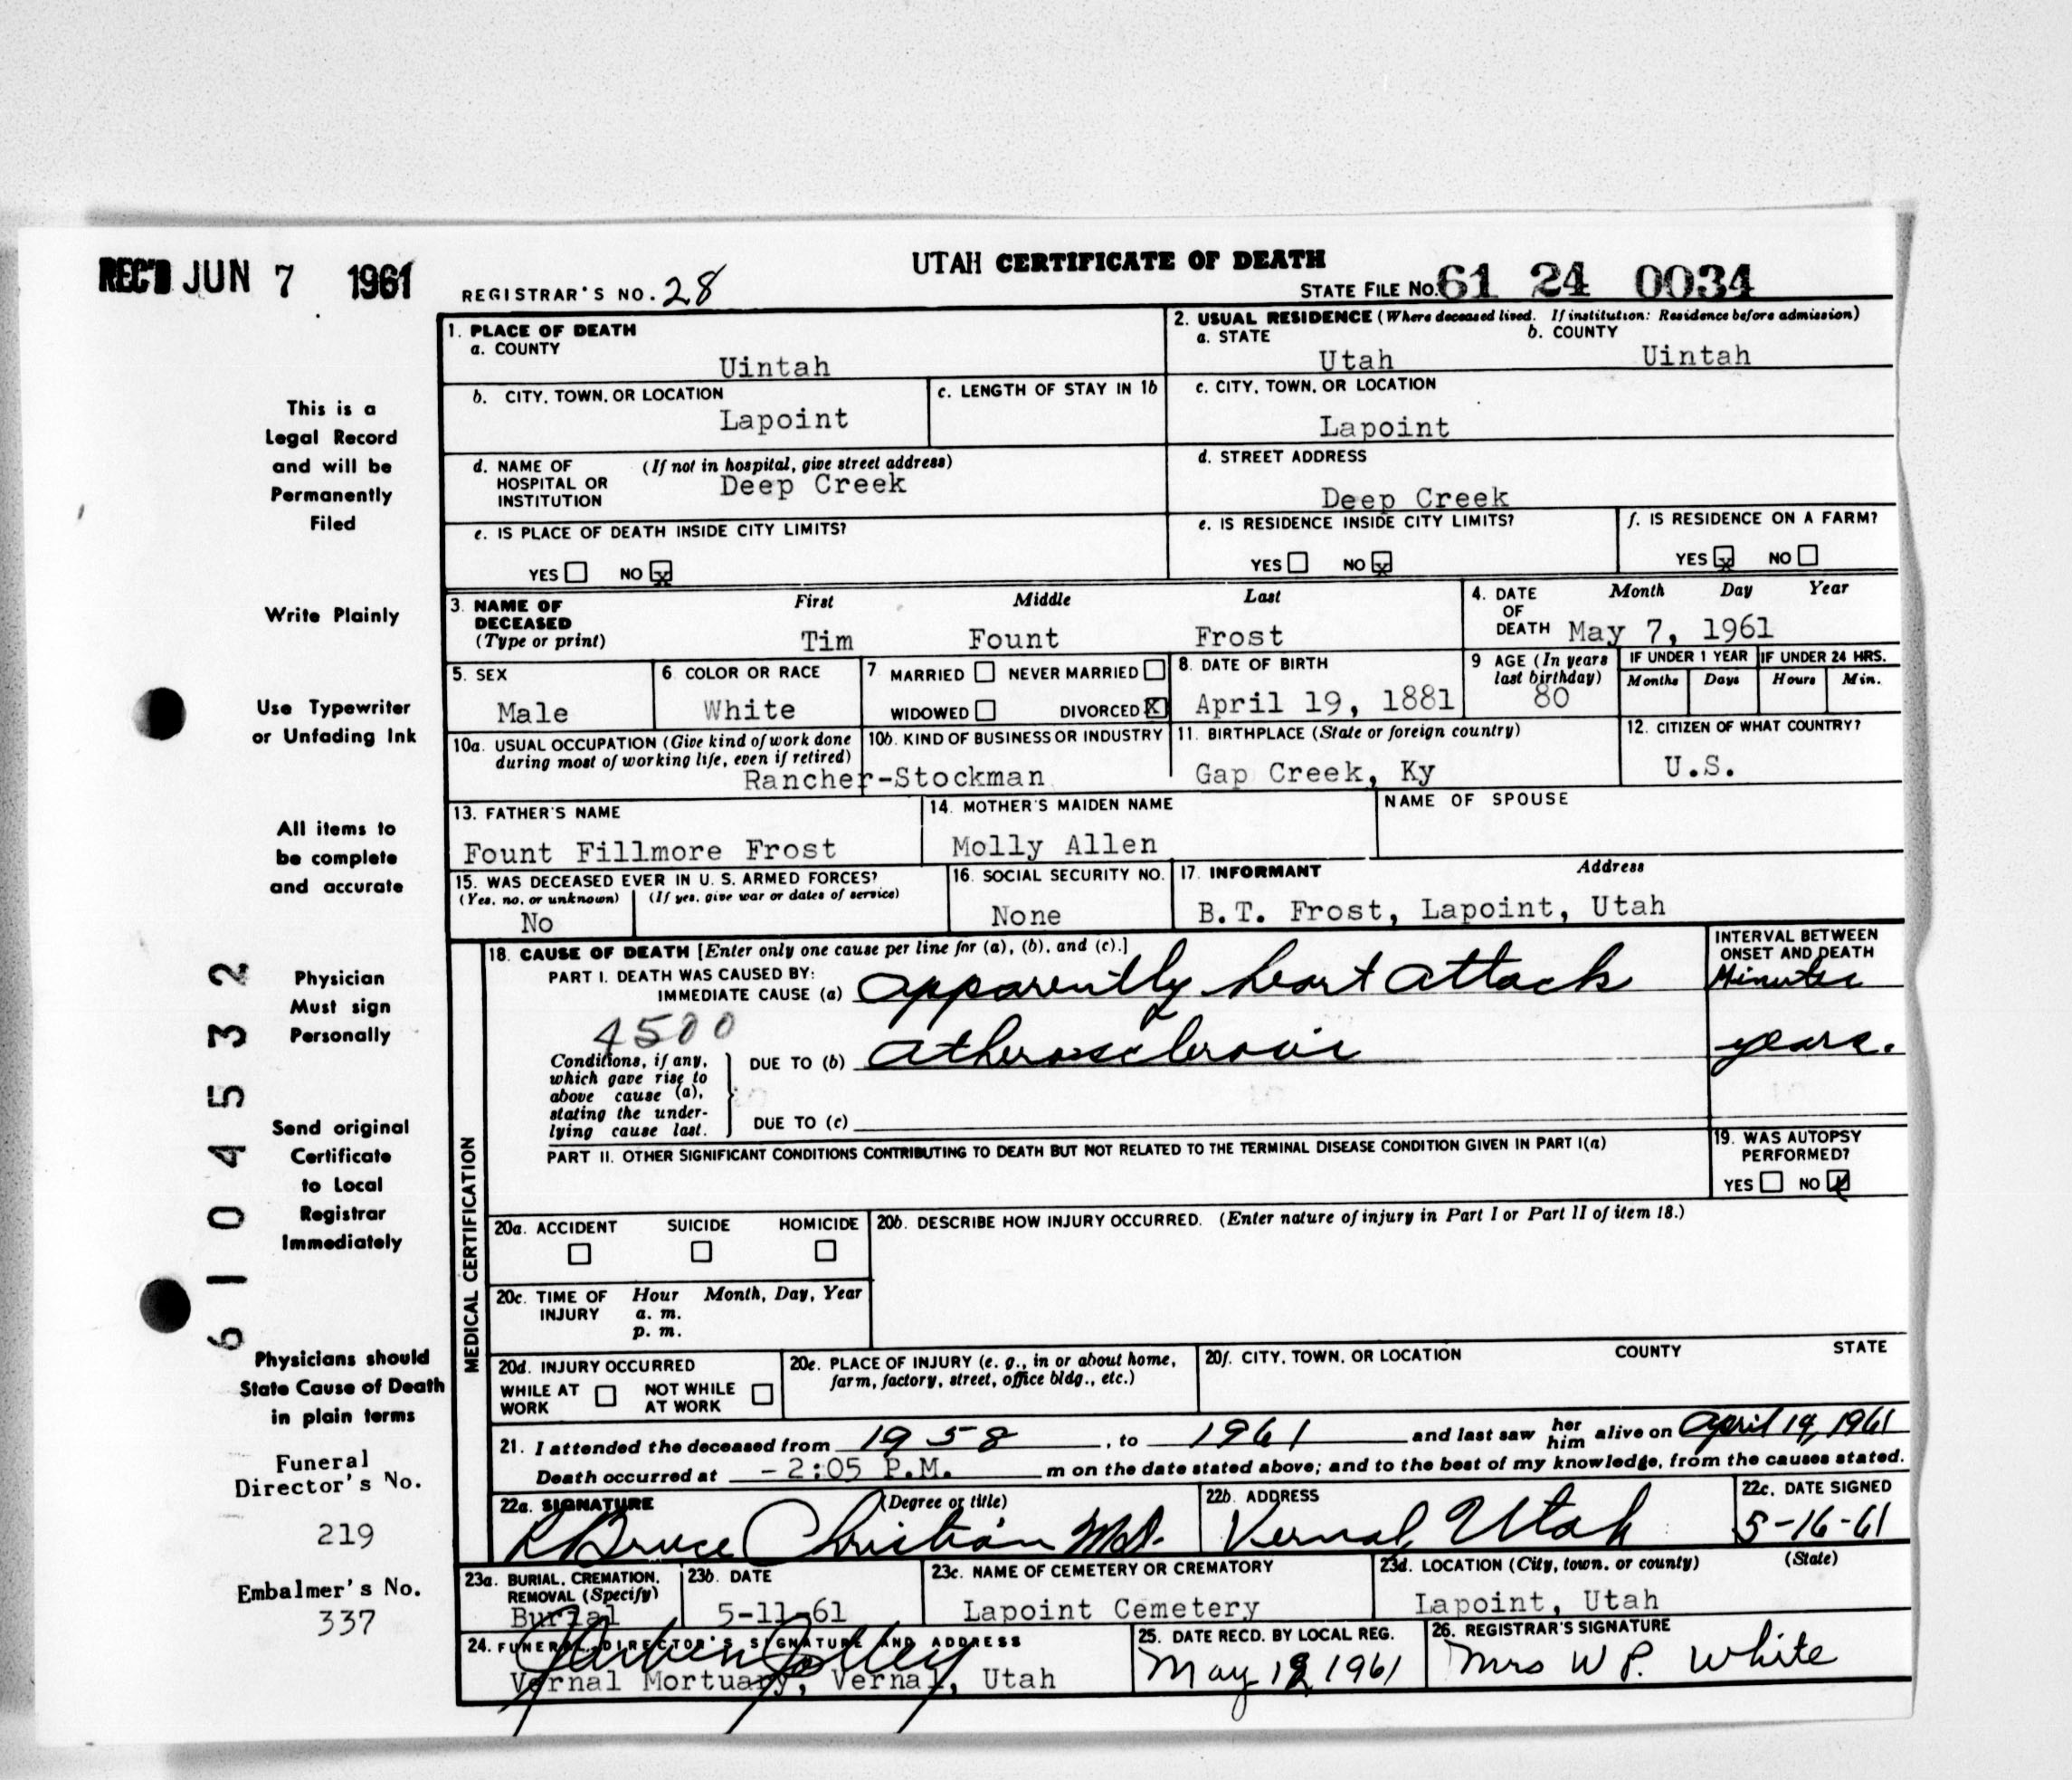 REC'D JUN 7 1961
UTAH CERTIFICATE OF DEATH
REGISTRAR'S NO. 28
STATE FILE No. 61 24 0034
1. PLACE OF DEATH
a. COUNTY
Uintah
2. USUAL RESIDENCE (Where deceased lived. If institution: Residence before admission)
a. STATE b. COUNTY
Utah Uintah
b. CITY, TOWN, OR LOCATION
Lapoint
c. LENGTH OF STAY IN 1b
c. CITY, TOWN, OR LOCATION
Lapoint
d. NAME OF (If not in hospital, give street address)
HOSPITAL OR
INSTITUTION
Deep Creek
d. STREET ADDRESS
Deep Creek
e. IS PLACE OF DEATH INSIDE CITY LIMITS?
YES NO x
e. IS RESIDENCE INSIDE CITY LIMITS?
YES NO x
f. IS RESIDENCE ON A FARM?
YES x NO
3. NAME OF
DECEASED
(Type or print)
First Middle Last
Tim Fount Frost
4. DATE Month Day Year
OF
DEATH May 7, 1961
5. SEX
Male
6. COLOR OR RACE
White
7 MARRIED NEVER MARRIED
WIDOWED DIVORCED X
8. DATE OF BIRTH
April 19, 1881
9 AGE (In years
last birthday)
80
IF UNDER 1 YEAR IF UNDER 24 HRS.
Months Days Hours Min.
10a. USUAL OCCUPATION (Give kind of work done
during most of working life, even if retired)
10b. KIND OF BUSINESS OR INDUSTRY
Rancher-Stockman
11. BIRTHPLACE (State or foreign country)
Gap Creek, Ky
12. CITIZEN OF WHAT COUNTRY?
U.S.
13. FATHER'S NAME
Fount Fillmore Frost
14. MOTHER'S MAIDEN NAME
Molly Allen
NAME OF SPOUSE
15. WAS DECEASED EVER IN U. S. ARMED FORCES?
(Yes, no, or unknown) (If yes, give war or dates of service)
No
16. SOCIAL SECURITY NO.
None
17. INFORMANT Address
B.T. Frost, Lapoint, Utah
MEDICAL CERTIFICATION
18. CAUSE OF DEATH [Enter only one cause per line for (a), (b), and (c).]
PART I. DEATH WAS CAUSED BY:
IMMEDIATE CAUSE (a) apparently heart attack
INTERVAL BETWEEN
ONSET AND DEATH
Minutes
4500
Conditions, if any,
which gave rise to
above cause (a),
stating the under-
lying cause last.
DUE TO (b) atherosclerosis
years.
DUE TO (c)
PART II. OTHER SIGNIFICANT CONDITIONS CONTRIBUTING TO DEATH BUT NOT RELATED TO THE TERMINAL DISEASE CONDITION GIVEN IN PART I(a)
19. WAS AUTOPSY
PERFORMED?
YES NO x
20a. ACCIDENT SUICIDE HOMICIDE
20b. DESCRIBE HOW INJURY OCCURRED. (Enter nature of injury in Part I or Part II of item 18.)
20c. TIME OF Hour Month, Day, Year
INJURY a. m.
p. m.
20d. INJURY OCCURRED
WHILE AT NOT WHILE
WORK AT WORK
20e. PLACE OF INJURY (e. g., in or about home,
farm, factory, street, office bldg., etc.)
20f. CITY, TOWN, OR LOCATION COUNTY STATE
21. I attended the deceased from 1958, to 1961 and last saw her him alive on April 19, 1961
Death occurred at -2:05 P.M. m on the date stated above; and to the best of my knowledge, from the causes stated.
22a. SIGNATURE (Degree or title)
R Bruce Christian M.D.
22b. ADDRESS
Vernal, Utah
22c. DATE SIGNED
5-16-61
23a. BURIAL, CREMATION,
REMOVAL (Specify)
Burial
23b. DATE
5-11-61
23c. NAME OF CEMETERY OR CREMATORY
Lapoint Cemetery
23d. LOCATION (City, town, or county) (State)
Lapoint, Utah
24. FUNERAL DIRECTOR'S SIGNATURE AND ADDRESS
Vernal Mortuary, Vernal, Utah
25. DATE RECD. BY LOCAL REG.
May 1961
26. REGISTRAR'S SIGNATURE
Mrs W P. White
This is a
Legal Record
and will be
Permanently
Filed
Write Plainly
Use Typewriter
or Unfading Ink
All items to
be complete
and accurate
Physician
Must sign
Personally
Send original
Certificate
to Local
Registrar
Immediately
Physicians should
State Cause of Death
in plain terms
Funeral
Director's No.
219
Embalmer's No.
337
6104532